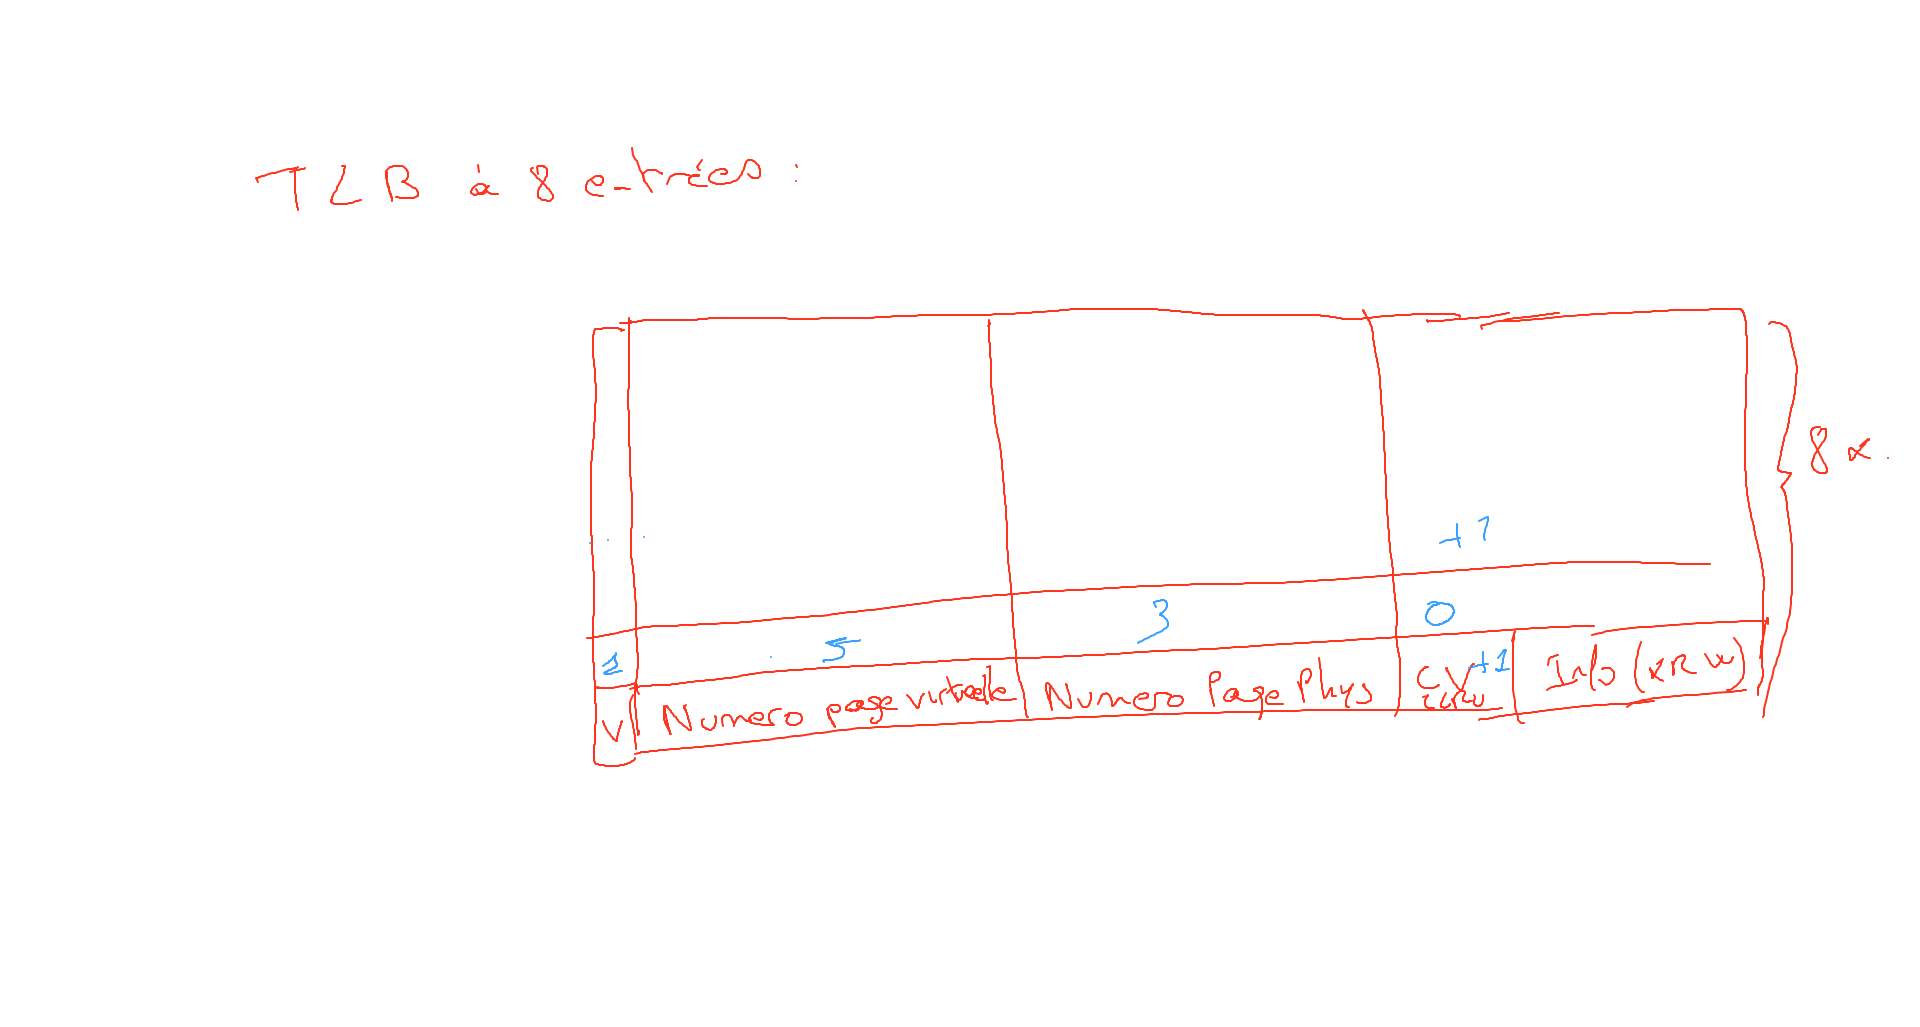 TLB à 8 entrées :
8 x.
+1
1 5 3 0
+1
V Numero page virtuelle Numero Page Phys CV Info (XRW)